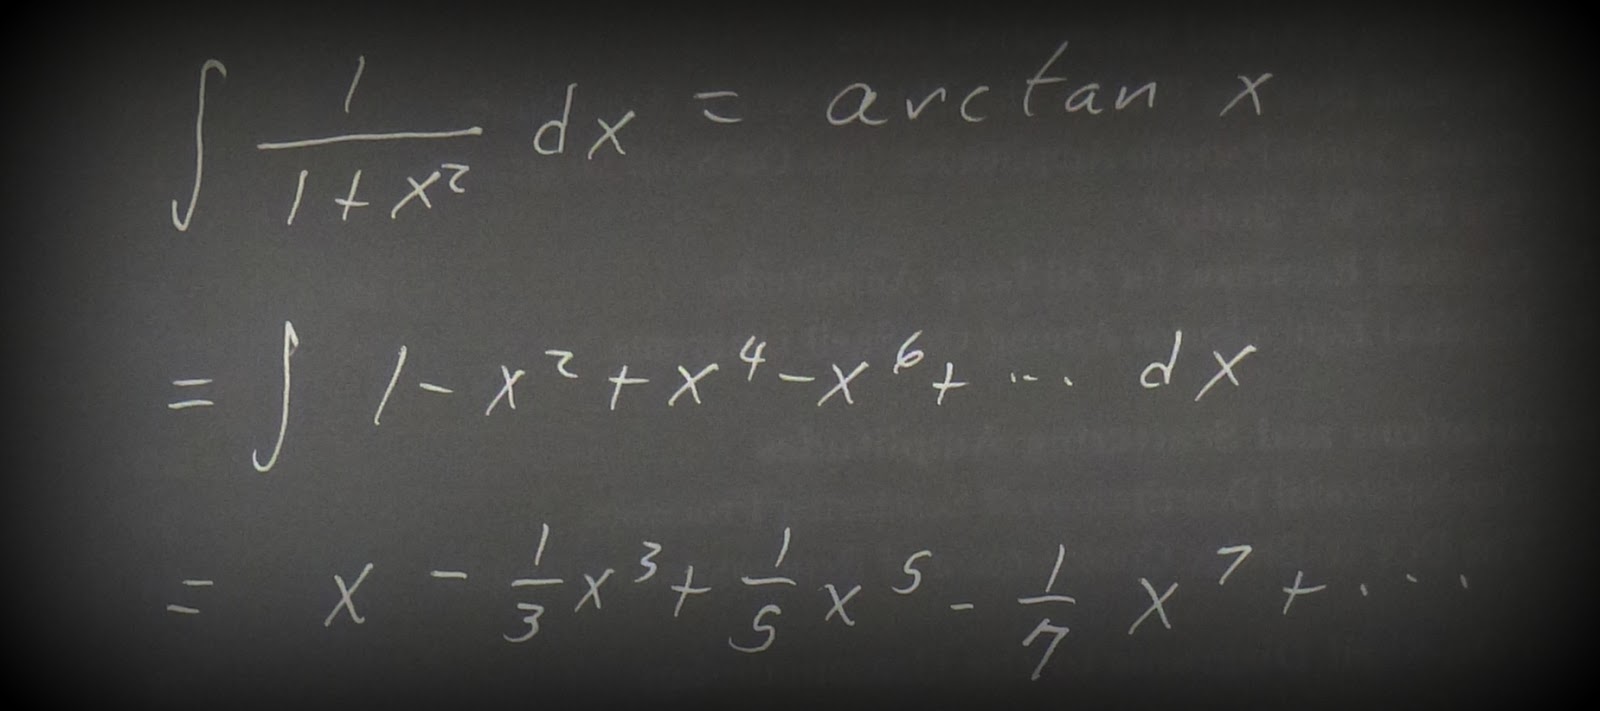 ∫ 1/(1+x²) dx = arctan x
= ∫ 1 - x² + x⁴ - x⁶ + ... dx
= x - 1/3 x³ + 1/5 x⁵ - 1/7 x⁷ + ...